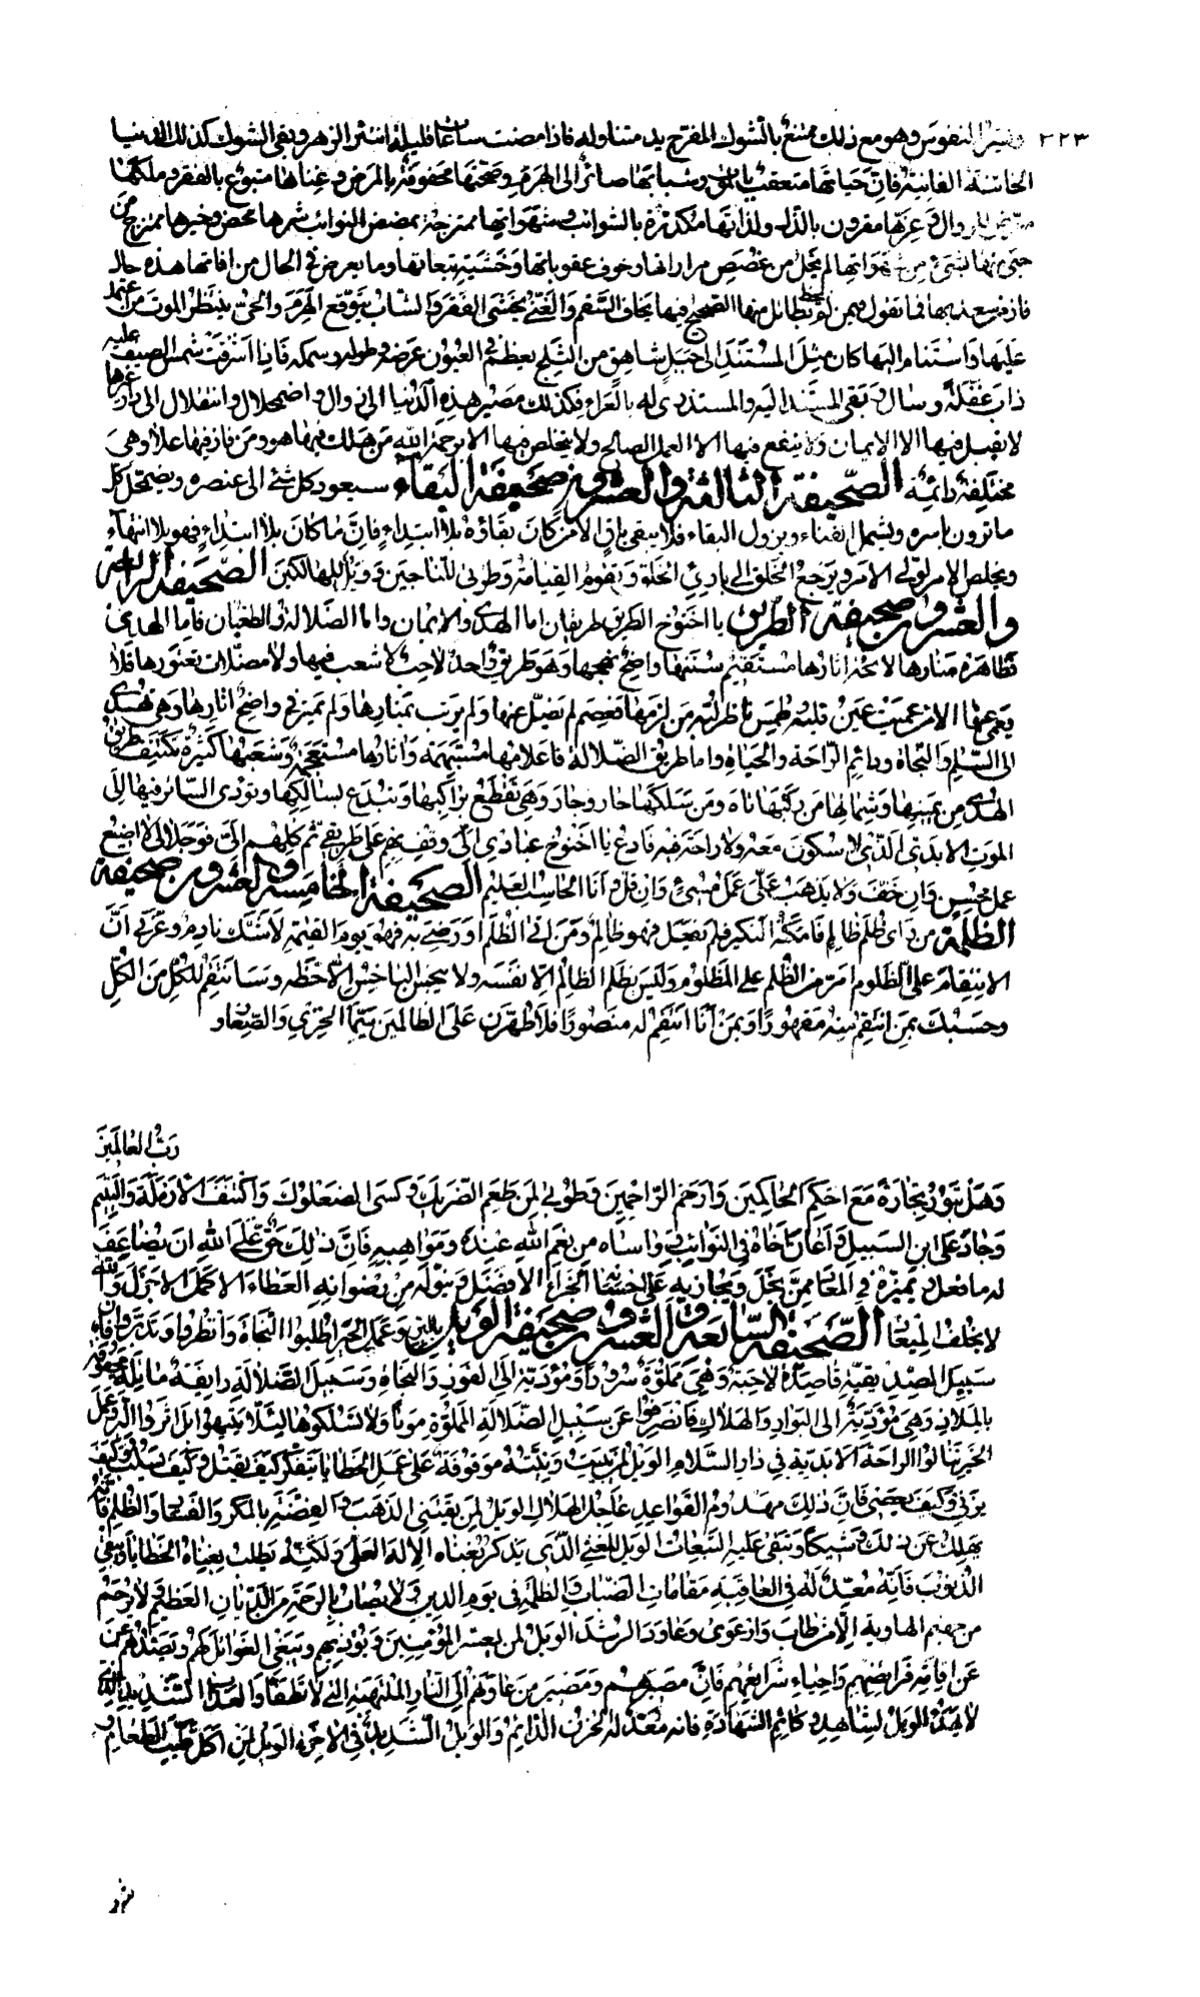 ٢٢٣ النفوس وهو مع ذلك ممتنع بالشوك المقرح يد متناوله فاذا مضت ساعات قليلة انتثر الزهر وبقى الشوك كذلك الدنيا
الفانية فان حياتها متعقبة بالموت وشبابها صائر الى الهرم وصحتها محفوفة بالمرض وغناها متبوع بالفقر وملكها
معرض للزوال وعزها مقرون بالذل ولذاتها مكدرة بالشوائب وشهواتها ممتزجة بمضض النوائب شرها محض وخيرها ممتزج من
شهواتها لم يخل من غصص مراراتها وخوف عقوباتها وخشية تبعاتها وما يعرض في الحال من افاتها هذه حال
من فاز بها فما تقول فيمن لم يحظ بطائل منها الصحيح فيها يخاف السقم والغنى يخشى الفقر والشاب يتوقع الهرم والحى ينتظر الموت من اعتمد
عليها واستنام اليها كان مثل المستند الى جبل شاهق من الثلج يعظم في العيون عرضه وطوله وسمكه فاذا اشرقت شمس الصيف عليه
ذاب غفلة وسال وبقى المستند اليه والمستذرى له بالعراء فكذلك مصير هذه الدنيا الى زوال واضمحلال وانتقال الى دار غيرها
لا يقبل فيها الا الايمان ولا ينفع فيها الا العمل الصالح ولا يتخلص فيها الا برحمة الله من هلك فيها هوى ومن فاز فيها علا وهى
مختلفة دائمة الصحيفة الثالثة والعشرون صحيفة البقاء سيعود كل شئ الى عنصره ويضمحل كل
ماترون باسره ويشمل الفناء ويزول البقاء فلا يبقى باق الا من كان بقاؤه بلا ابتداء فان ما كان بلا ابتداء فهو بلا انتهاء
ويخلص الامر لولى الامر ويرجع الخلق الى بارئ الخلق وتقوم القيامة وطوبى للناجين وويل للهالكين الصحيفة الرابعة
والعشرون صحيفة الطريق يا اخنوخ الطريق طريقان اما الهدى والايمان واما الضلالة والطغيان فاما الهدى
فظاهرة منارها لائحة اثارها مستقيم سننها واضح نهجها وهو طريق واحد لاحب لا شعب فيها ولا مضلات تعتورها فلا
يعمى عنها الا من عميت عين قلبه وطمس ناظر لبه من لزمها فعصم لم يضل عنها ولم يرتب بمنارها ولم يمتر في واضح اثارها وهى تهدى
الى السلم والنجاة ودائم الراحة والحياة واما طريق الضلالة فاعلامها مستبهمة واثارها مستعجمة وشعبها كثيرة تكتنف طريق
الهدى من يمينها وشمالها من ركبها تاه ومن سلكها حار وجار وهى تقطع براكبها وتبدع بسالكها وتؤدى السائر فيها الى
الموت الابدى الذى لا سكون معه ولا راحة فيه فادع يا اخنوخ عبادى الى وقف بهم على طريقى ثم كلهم الى فوجلالى لا اضيع
عمل محسن وان خف ولا يذهب على عمل مسئ وان قل وانا الحاسب العليم الصحيفة الخامسة والعشرون صحيفة
الظلمة من راى ظلم ظالم فامكنه النكير فلم يفعل فهو ظالم ومن اتى الظلم او رضى به فهو يوم القيمة لا شك نادم وعزتى ان
الانتقام على المظلوم امر من الظلم على المظلوم وليس يظلم الظالم الا نفسه ولا يبخس الباخس الا حظه وسانتقم للكل من الكل
وحسبك بمن انتقم منه مقهورا وبمن انا انتقم له منصورا فلاظهرن على الظالمين سيما الخزى والصغار
رب العالمين
وهل تبور تجارة مع احكم الحاكمين وارحم الراحمين وطوبى لمن طعم الضريك وكسى الصعلوك واكتنف الارملة واليتيم
وجاد على ابن السبيل واعان اخاه في النوائب وواساه من نعم الله عنده ومواهبه فان ذلك حق على الله ان يضاعف
له ما فعل ويميزه في المعاد ممن بخل ويجازيه على احسانه الجزاء الافضل وينوله من رضوانه العطاء الاكمل الاجزل والله
لا يخلف الميعاد الصحيفة السابعة والعشرون صحيفة الويل بالبر وعمل الخير اطلبوا النجاة وانظروا وتدبروا فان
سبيل الصدق نقية قاصدة لاحبة وهى مملوة سرورا ومؤدية الى الفوز والنجاة وسبيل الضلالة رايقة مائلة محفوفة
بالملاذ وهى مؤدية الى البوار والهلاك فانصرفوا عن سبيل الضلالة المملوة موتا ولا تسلكوها لئلا تتيهوا بل اثروا البر وعمل
الخير تنالوا الراحة الابدية في دار السلام الويل لمن يبيت ونيته موقوفة على عمل الخطايا يتفكر كيف يقتل وكيف يسلب وكيف
يزنى وكيف يعصى فان ذلك مهدوم القواعد عاجل الهلاك الويل لمن يقتنى الذهب والفضة بالمكر والغش والظلم فانه
يهلك عن ذلك وشيكا وتبقى عليه التبعات الويل للغنى الذى يذكر بغناه الاله العلى ولكنه يطلب بغناه الخطايا ويبغى
الذنوب فانه معد له في العاقبة مقامات الضباب والظلمة في يوم الدين ولا يصاب بالرحمة من الديان العظيم لا يرحم
من جهنم الهاوية الا من طاب وارعوى وعاود الرشد الويل لمن يعسر المؤمنين ويؤذيهم ويبغى الغوائل لهم ويصدهم عن
عن اقامة فرائضهم واحياء شرائعهم فان مصيرهم ومصير من عاونهم الى النار الملتهبة التى لا تطفأ والعذاب الشديد الذى
لا يهدأ الويل لشاهد الزور وكاتم الشهادة فانه معد له الحزن الدائم والويل الشديد في الاخرة الويل لمن اكل طيب الطعام و